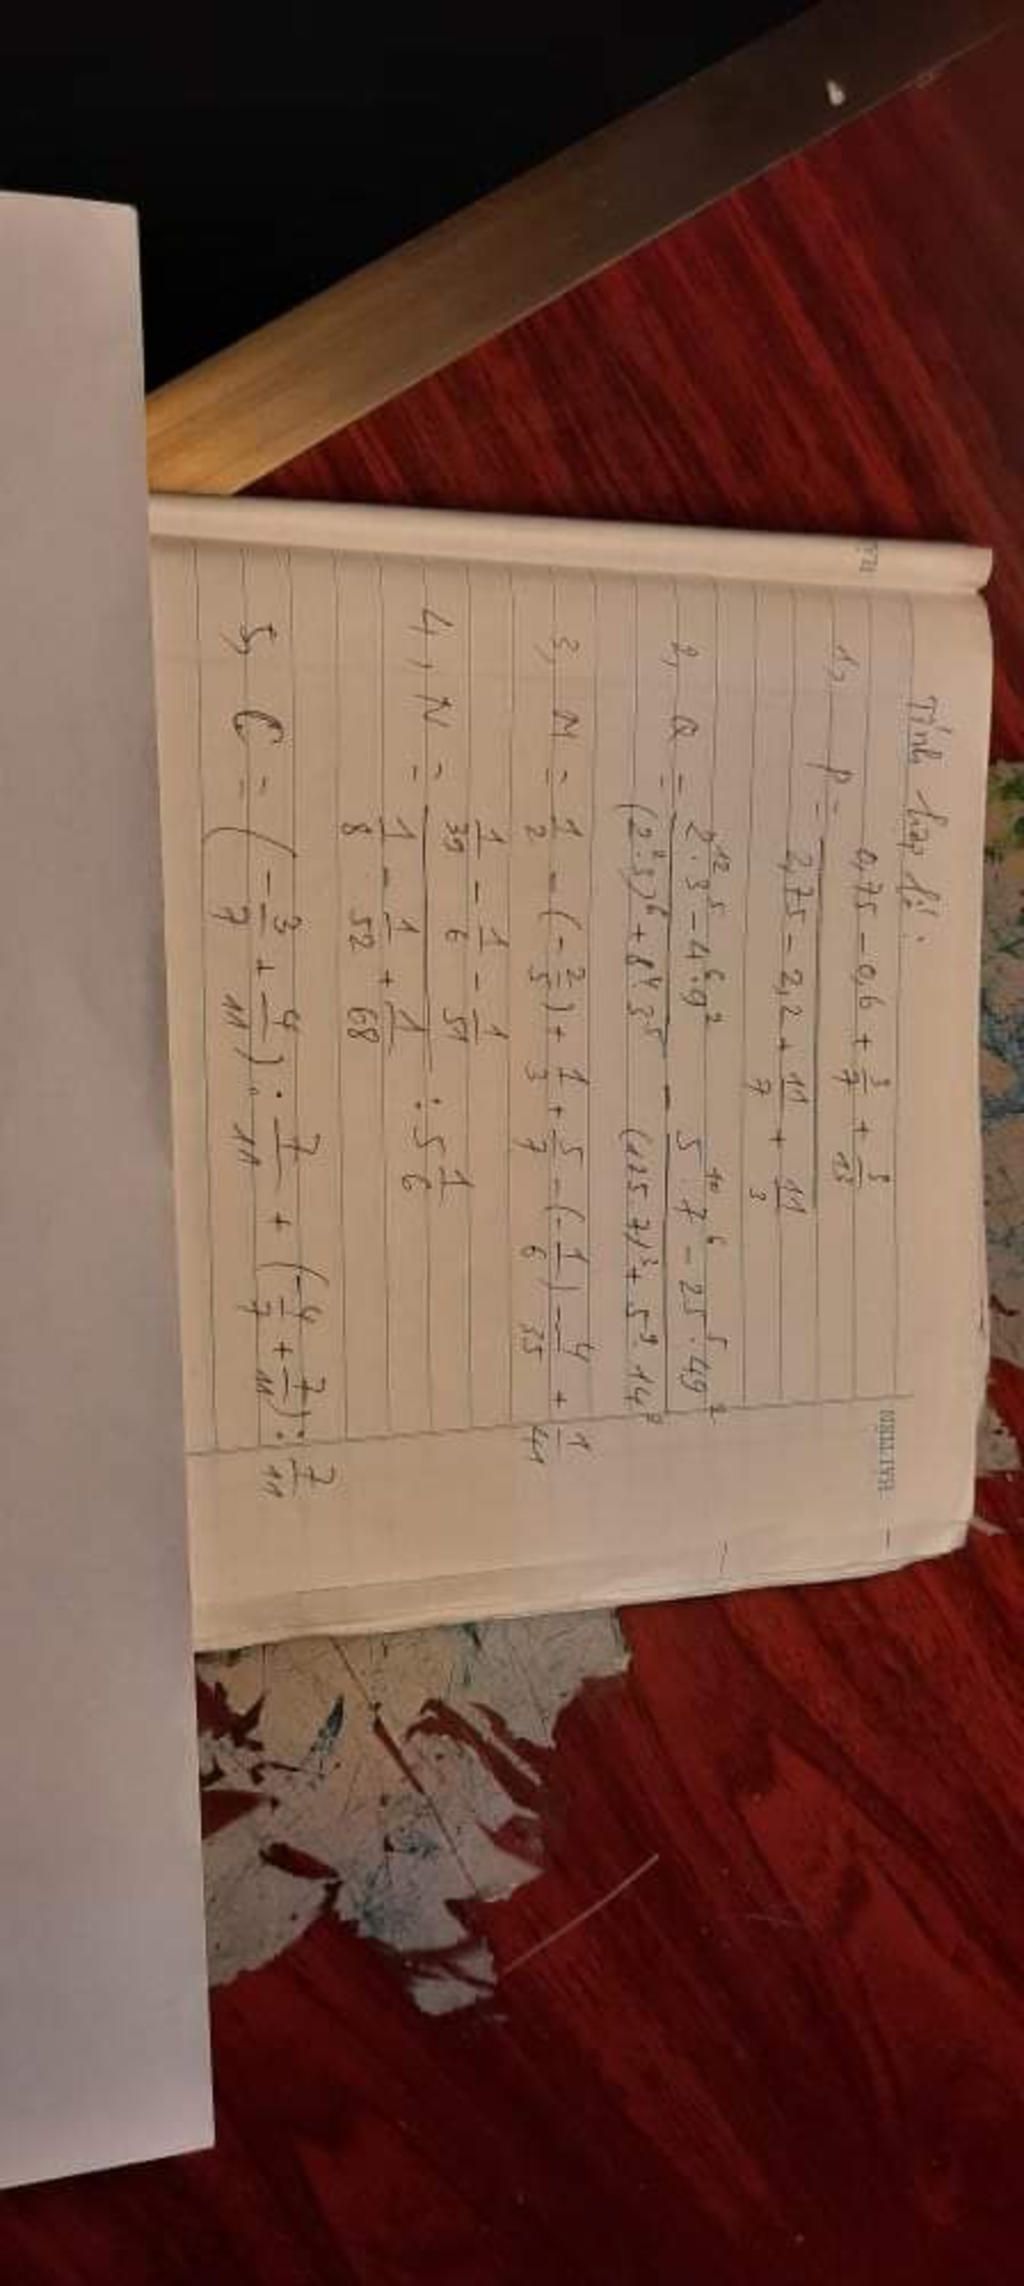 HẢI TIẾN
Tính hợp lí:
1, P = \frac{0,75 - 0,6 + \frac{3}{7} + \frac{3}{13}}{2,75 - 2,2 + \frac{11}{7} + \frac{11}{3}}
2, Q = \frac{2^{12} \cdot 3^5 - 4^6 \cdot 9^2}{(2^2 \cdot 3)^6 + 8^4 \cdot 3^5} - \frac{5^{10} \cdot 7^6 - 25^5 \cdot 49^2}{(125 \cdot 7)^3 + 5^9 \cdot 14^3}
3, M = \frac{1}{2} - (-\frac{2}{5}) + \frac{1}{3} + \frac{5}{7} - (-\frac{1}{6}) - \frac{4}{35} + \frac{1}{41}
4, N = \frac{\frac{1}{39} - \frac{1}{6} - \frac{1}{51}}{\frac{1}{8} - \frac{1}{52} + \frac{1}{68}} : 5\frac{1}{6}
5, C = (-\frac{3}{7} + \frac{4}{11}) : \frac{7}{11} + (-\frac{4}{7} + \frac{7}{11}) : \frac{7}{11}